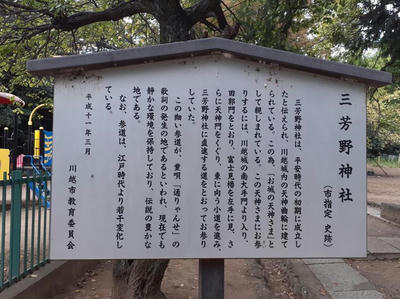 三芳野神社
(市指定 史跡)
三芳野神社は、平安時代の初期に成立し
たと伝えられ、川越城内の天神曲輪に建て
られている。この為、「お城の天神さま」と
して親しまれている。この天神さまにお参
りするには、川越城の南大手門より入り、
田郭門をとおり、富士見櫓を左手に見、さ
らに天神門をくぐり、東に向う小道を進み、
三芳野神社に直進する道をとおってお参り
していた。
この細い参道が、童唄「通りゃんせ」の
歌詞の発生の地であるといわれ、現在でも
静かな環境を保持しており、伝説の豊かな
地である。
なお、参道は、江戸時代より若干変化し
ている。
平成十一年三月
川越市教育委員会